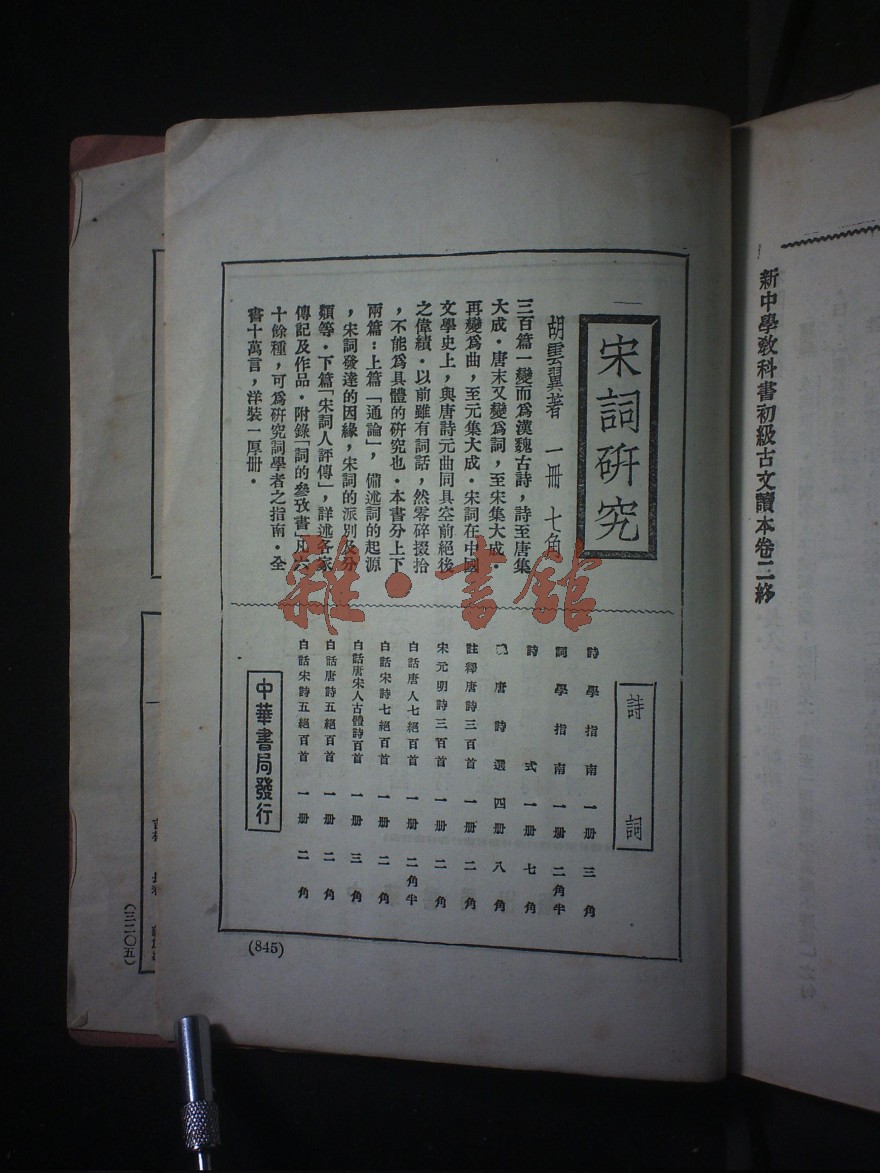 新中學教科書初級古文讀本卷二終
宋詞研究
胡雲翼著 一冊 七角
三百篇一變而爲漢魏古詩,詩至唐集
大成・唐末又變爲詞,至宋集大成・
再變爲曲,至元集大成・宋詞在中國
文學史上,與唐詩元曲同具空前絕後
之偉績・以前雖有詞話,然零碎掇拾
,不能爲具體的研究也・本書分上下
兩篇:上篇「通論」,備述詞的起源
,宋詞發達的因緣,宋詞的派別及分
類等・下篇「宋詞人評傳」,詳述各家
傳記及作品・附錄「詞的參攷書」凡六
十餘種,可爲研究詞學者之指南・全
書十萬言,洋裝一厚册・
詩詞
詩學指南 一册 三角
詞學指南 一册 二角半
詩式 一册 七角
唐詩選 四册 八角
註釋唐詩三百首 一册 二角
宋元明詩三百首 一册 二角
白話唐人七絕百首 一册 二角半
白話宋詩七絕百首 一册 二角
白話唐宋人古體詩百首 一册 三角
白話唐詩五絕百首 一册 二角
白話宋詩五絕百首 一册 二角
中華書局發行
(845)
(三二〇五)
雜・書館